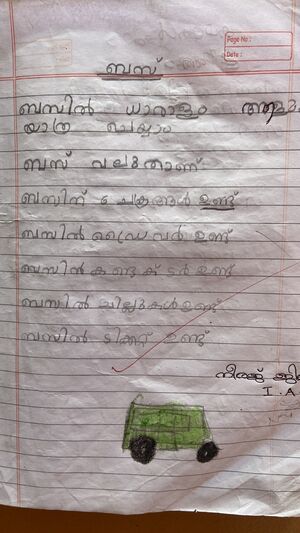 Page No :
Date :
ബസ്
ബസിൽ ധാരാളം
യാത്ര ചെയ്യാം
ബസ് വലുതാണ്
ബസിന് 6 ചക്രങ്ങൾ ഉണ്ട്
ബസിൽ ഡ്രൈവർ ഉണ്ട്
ബസിൽ കണ്ടക്ടർ ഉണ്ട്
ബസിൽ ചില്ലുകൾ ഉണ്ട്
ബസിൽ ടിക്കറ്റ് ഉണ്ട്
I. A